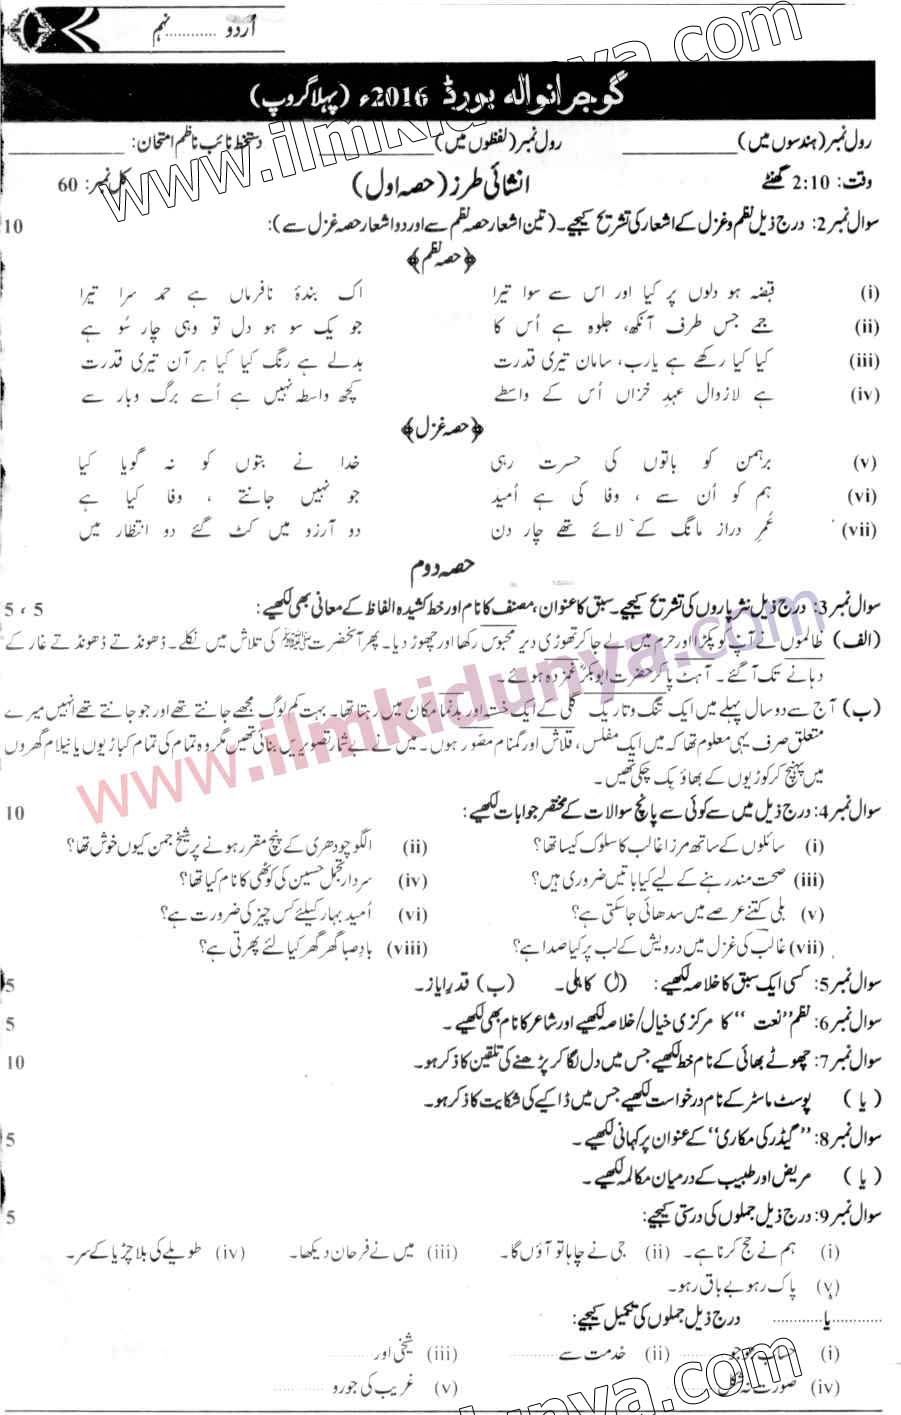 اُردو ............ نہم
گوجرانوالہ بورڈ 2016ء (پہلا گروپ)
رول نمبر (ہندسوں میں) ____________ رول نمبر (لفظوں میں) ____________ دستخط نائب ناظم امتحان: ____________
وقت: 2:10 گھنٹے انشائی طرز (حصہ اول) کل نمبر: 60
سوال نمبر 2: درج ذیل نظم و غزل کے اشعار کی تشریح کیجیے۔ (تین اشعار حصہ نظم سے اور دو اشعار حصہ غزل سے): 10
﴿حصہ نظم﴾
(i) قبضہ ہو دلوں پر کیا اور اس سے سوا تیرا اک بندۂ نافرماں ہے حمد سرا تیرا
(ii) جمے جس طرف آنکھ، جلوہ ہے اُس کا جو یک سو ہو دل تو وہی چار سُو ہے
(iii) کیا کیا رکھے ہے یارب، سامان تیری قدرت بدلے ہے رنگ کیا کیا ہر آن تیری قدرت
(iv) ہے لازوال عہدِ خزاں اُس کے واسطے کچھ واسطہ نہیں ہے اُسے برگ و بار سے
﴿حصہ غزل﴾
(v) برہمن کو باتوں کی حسرت رہی خدا نے بتوں کو نہ گویا کیا
(vi) ہم کو اُن سے ، وفا کی ہے اُمید جو نہیں جانتے ، وفا کیا ہے
(vii) عُمرِ دراز مانگ کے لائے تھے چار دن دو آرزو میں کٹ گئے دو انتظار میں
حصہ دوم
سوال نمبر 3: درج ذیل نثر پاروں کی تشریح کیجیے۔ سبق کا عنوان، مصنف کا نام اور خط کشیدہ الفاظ کے معانی بھی لکھیے: 5 ، 5
(الف) ظالموں نے آپ کو پکڑا اور حرم میں لے جا کر تھوڑی دیر محبوس رکھا اور چھوڑ دیا۔ پھر آنحضرت ﷺ کی تلاش میں نکلے۔ ڈھونڈتے ڈھونڈتے غار کے
دہانے تک آ گئے۔ آہٹ پا کر حضرت ابوبکرؓ غمزدہ ہوئے۔
(ب) آج سے دو سال پہلے میں ایک تنگ و تاریک گلی کے ایک خستہ اور بدنما مکان میں رہتا تھا۔ بہت کم لوگ مجھے جانتے تھے اور جو جانتے تھے انہیں میرے
متعلق صرف یہی معلوم تھا کہ میں ایک مفلس، قلاش اور گمنام مصور ہوں۔ میں نے بے شمار تصویریں بنائی تھیں مگر وہ تمام کی تمام کباڑیوں یا نیلام گھروں
میں پہنچ کر کوڑیوں کے بھاؤ بک چکی تھیں۔
سوال نمبر 4: درج ذیل میں سے کوئی سے پانچ سوالات کے مختصر جوابات لکھیے: 10
(i) سائلوں کے ساتھ مرزا غالب کا سلوک کیسا تھا؟ (ii) الگو چودھری کے پنچ مقرر ہونے پر شیخ جمن کیوں خوش تھا؟
(iii) صحت مند رہنے کے لیے کیا باتیں ضروری ہیں؟ (iv) سردار تجمل حسین کی کوٹھی کا نام کیا تھا؟
(v) بلی کتنے عرصے میں سدھائی جا سکتی ہے؟ (vi) اُمید بہار کیلئے کس چیز کی ضرورت ہے؟
(vii) غالب کی غزل میں درویش کے لب پر کیا صدا ہے؟ (viii) بادِ صبا گھر گھر کیا لئے پھرتی ہے؟
سوال نمبر 5: کسی ایک سبق کا خلاصہ لکھیے: (ا) کاہلی۔ (ب) قدرِ ایاز۔ 5
سوال نمبر 6: نظم "نعت" کا مرکزی خیال/خلاصہ لکھیے اور شاعر کا نام بھی لکھیے۔ 5
سوال نمبر 7: چھوٹے بھائی کے نام خط لکھیے جس میں دل لگا کر پڑھنے کی تلقین کا ذکر ہو۔ 10
(یا) پوسٹ ماسٹر کے نام درخواست لکھیے جس میں ڈاکیے کی شکایت کا ذکر ہو۔
سوال نمبر 8: "گیدڑ کی مکاری" کے عنوان پر کہانی لکھیے۔ 5
(یا) مریض اور طبیب کے درمیان مکالمہ لکھیے۔
سوال نمبر 9: درج ذیل جملوں کی درستی کیجیے: 5
(i) ہم نے حج کرنا ہے۔ (ii) جی نے چاہا تو آؤں گا۔ (iii) میں نے فرحان دیکھا۔ (iv) طویلے کی بلا چڑیا کے سر۔
(v) پاک رہو بے باق رہو۔
............یا............ درج ذیل جملوں کی تکمیل کیجیے:
(i) حساب جو جو ............ (ii) خدمت سے ............ (iii) شیخی اور ............
(iv) صورت نہ شکل ............ (v) غریب کی جورو ............
www.ilmkidunya.com
www.ilmkidunya.com
www.ilmkidunya.com